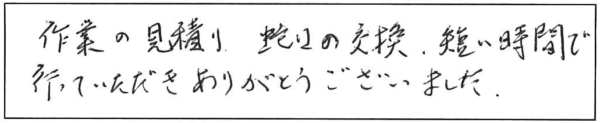 作業の見積り、蛇口の交換、短い時間で
行っていただきありがとうございました。